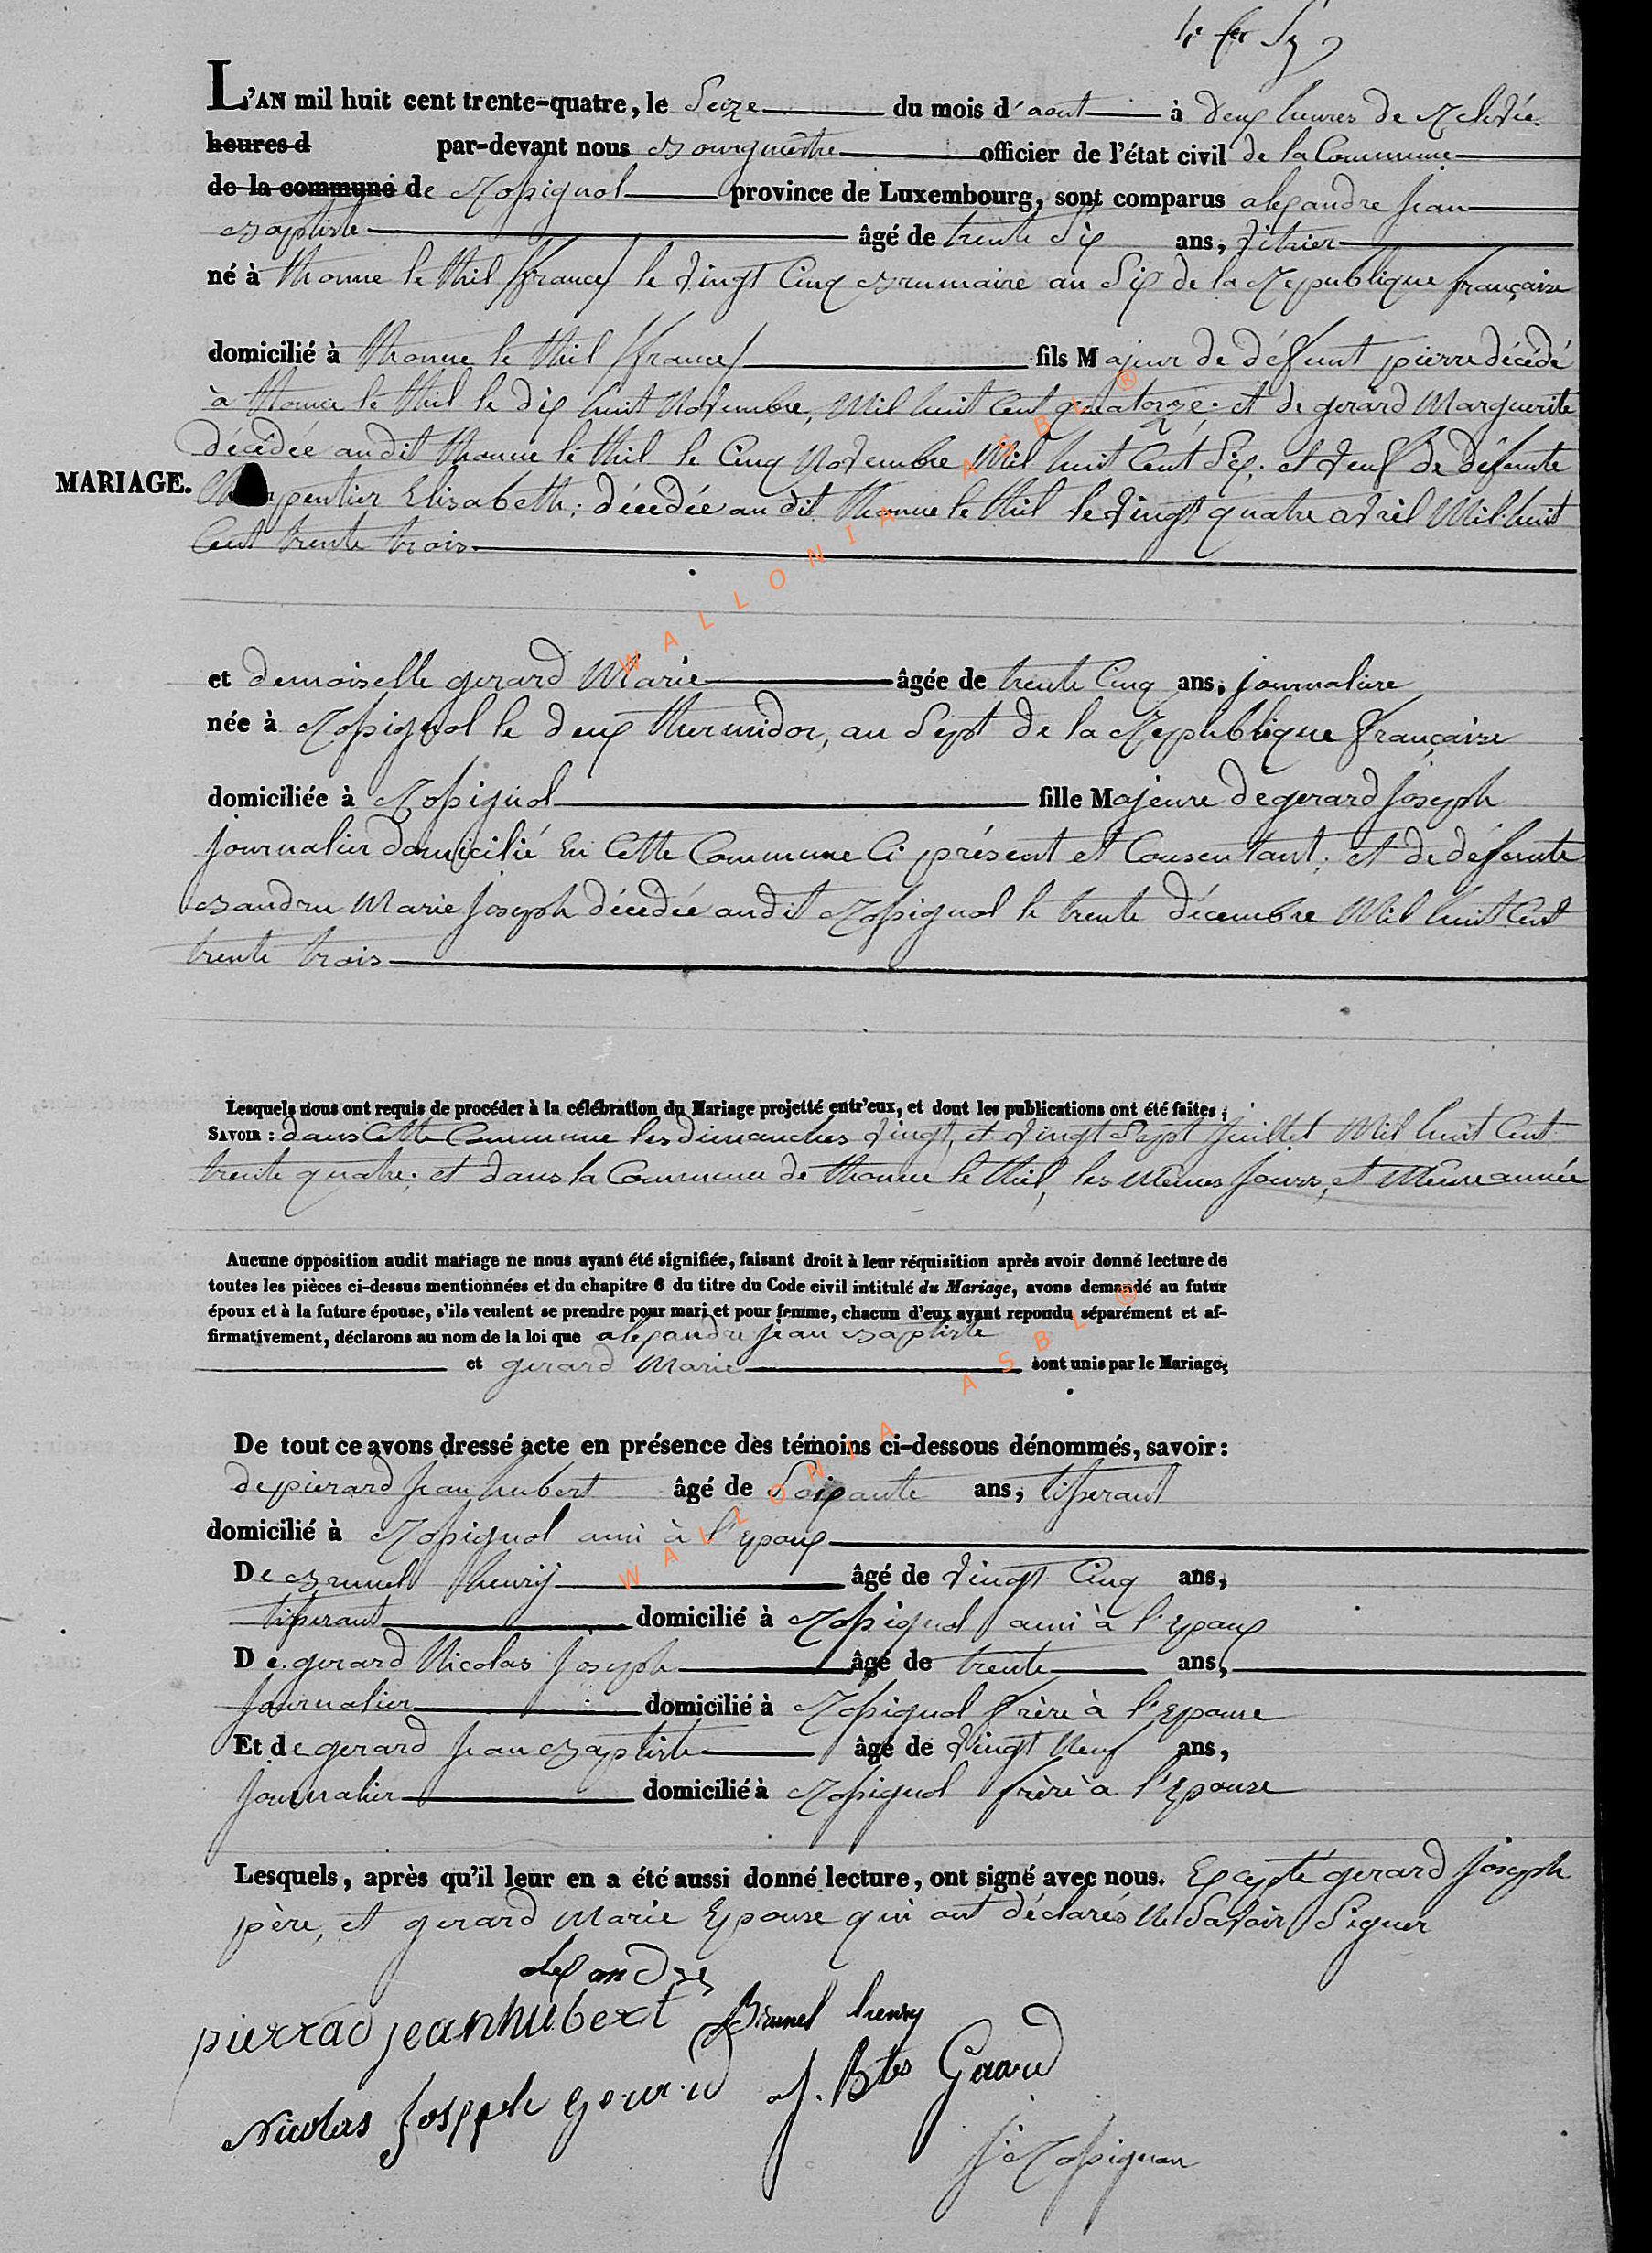 L'AN mil huit cent trente-quatre, le Seize du mois d'aout à deux heures de Relevée
heures d par-devant nous Bourgmestre officier de l'état civil de la Commune
de la commune de Rossignol province de Luxembourg, sont comparus alexandre jean
Baptiste âgé de trente Six ans, vitrier
né à thonne le thil (france) le vingt Cinq Brumaire an Six de la Republique française
domicilié à thonne le thil (france) fils Majeur de défunt pierre décédé
à thonne le thil le dix huit Novembre, Mil huit Cent quatorze; et de gerard Marguerite
décédée audit thonne le thil le Cinq Novembre Mil huit Cent Six; et veuf de défunte
MARIAGE. Charpentier Elisabeth; décédée au dit thonne le thil le vingt quatre avril Mil huit
Cent trente trois
et demoiselle gerard Marie âgée de trente Cinq ans, journaliere
née à Rossignol le deux thermidor, an Sept de la Republique française
domiciliée à Rossignol fille Majeure de gerard Joseph
journalier domicilié En Cette Commune Ci présent et Consentant; et de défunte
Baudru Marie Joseph décédée audit Rossignol le trente décembre Mil huit Cent
trente trois
Lesquels nous ont requis de procéder à la célébration du Mariage projetté entr'eux, et dont les publications ont été faites;
SAVOIR : dans Cette Commune les dimanches vingt, et vingt Sept Juillet Mil huit Cent
trente quatre; et dans la Commune de thonne le thil, les Mêmes jours, et Même année
Aucune opposition audit mariage ne nous ayant été signifiée, faisant droit à leur réquisition après avoir donné lecture de
toutes les pièces ci-dessus mentionnées et du chapitre 6 du titre du Code civil intitulé du Mariage, avons demandé au futur
époux et à la future épouse, s'ils veulent se prendre pour mari et pour femme, chacun d'eux ayant repondu séparément et af-
firmativement, déclarons au nom de la loi que alexandre jean Baptiste
et gerard Marie sont unis par le Mariage;
De tout ce avons dressé acte en présence des témoins ci-dessous dénommés, savoir :
de pierard jean hubert âgé de Soixante ans, tisserant
domicilié à Rossignol ami à l'Epoux
De Brunel henry âgé de vingt Cinq ans,
tisserant domicilié à Rossignol ami à l'Epoux
De gerard Nicolas Joseph âgé de trente ans,
Journalier domicilié à Rossignol frère à l'Epouse
Et de gerard jean Baptiste âgé de vingt Neuf ans,
Journalier domicilié à Rossignol frère à l'Epouse
Lesquels, après qu'il leur en a été aussi donné lecture, ont signé avec nous. Excepté gerard Joseph
père, et gerard Marie Epouse qui ont déclarés Ne Savoir Signer
alexandre
pierrad jeanhubert Brunel henry
Nicolas Joseph Gerard J. Bte Gerard
J. Rossignon
WALLONIA ASBL ®
WALLONIA ASBL ®